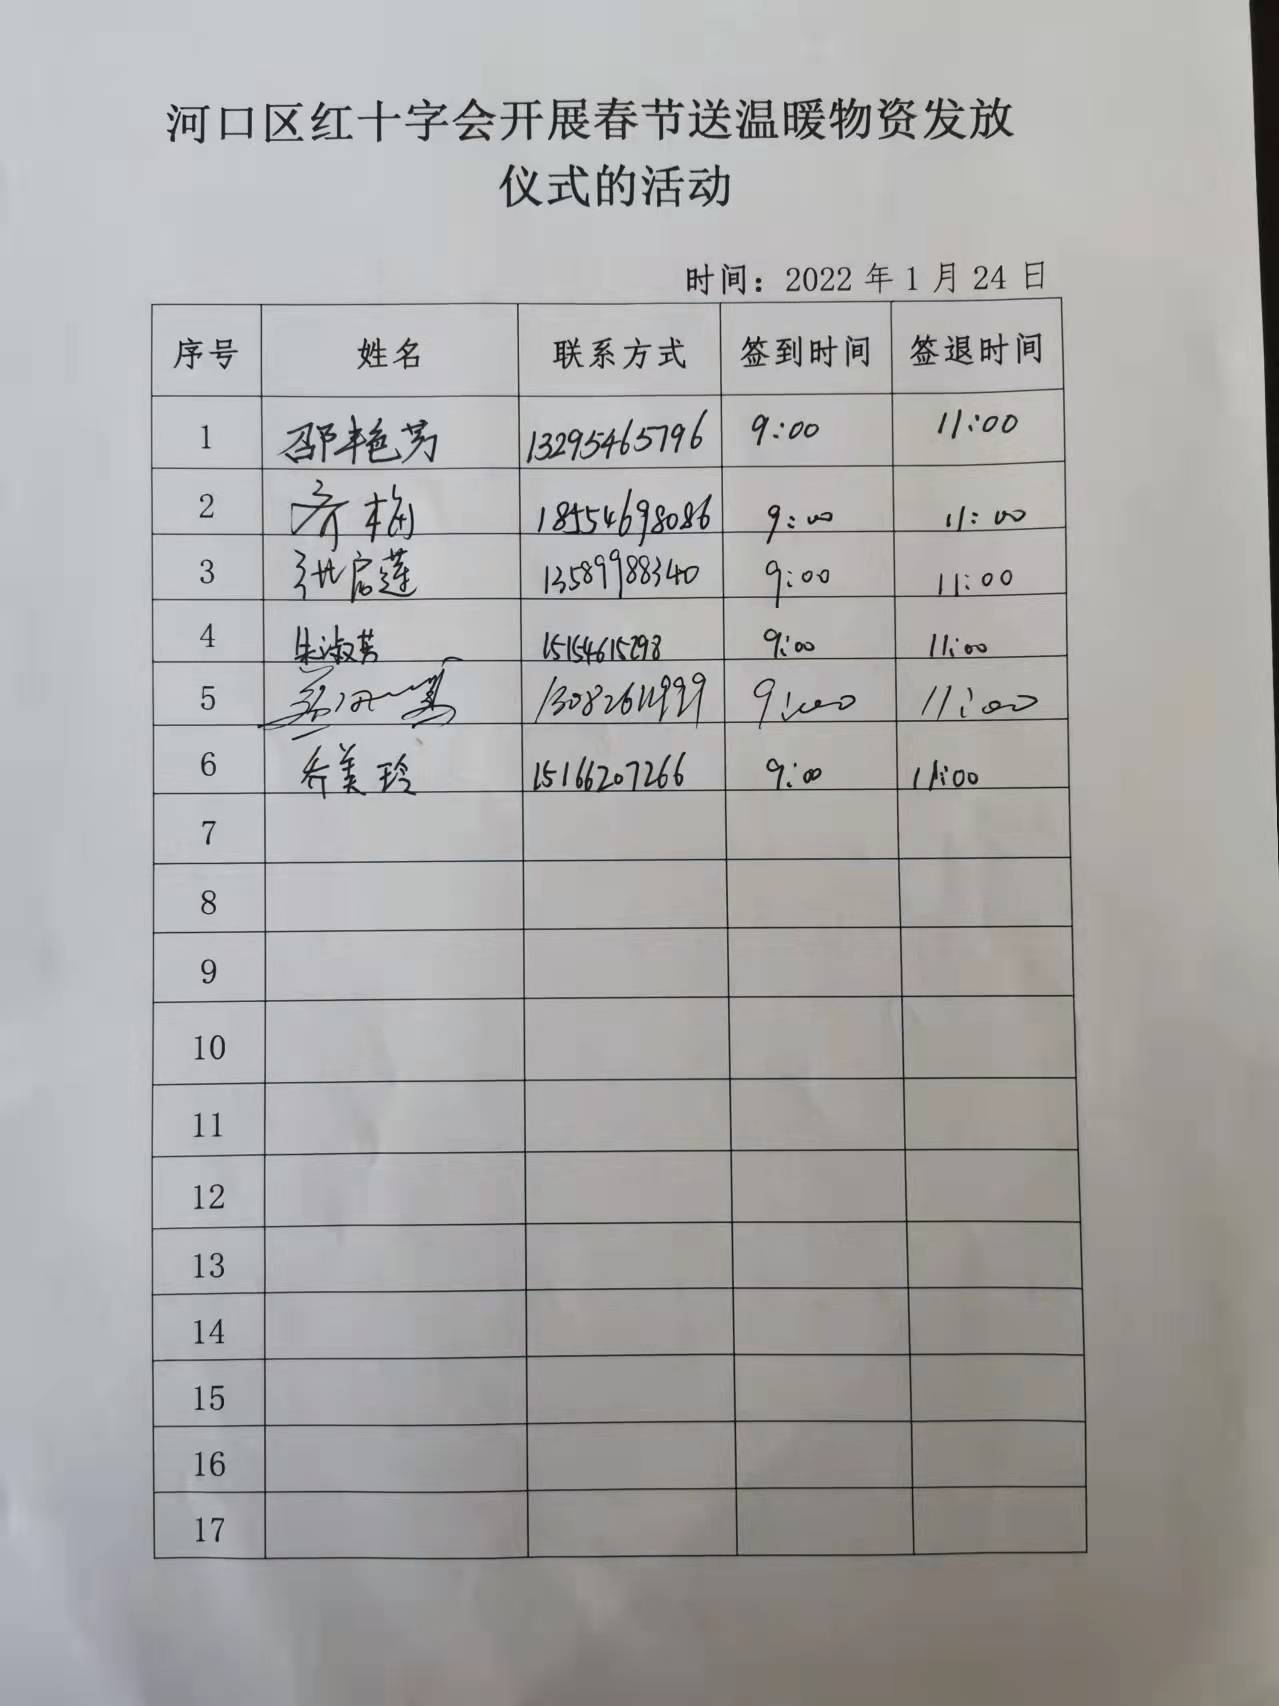 河口区红十字会开展春节送温暖物资发放
仪式的活动
时间：2022年1月24日
序号 姓名 联系方式 签到时间 签退时间
1 邵艳芳 13295465796 9:00 11:00
2 齐梅 18554698086 9:00 11:00
3 张启莲 13589988340 9:00 11:00
4 朱淑芳 15154615298 9:00 11:00
5 9:00 11:00
6 乔美玲 15166207266 9:00 11:00
7
8
9
10
11
12
13
14
15
16
17